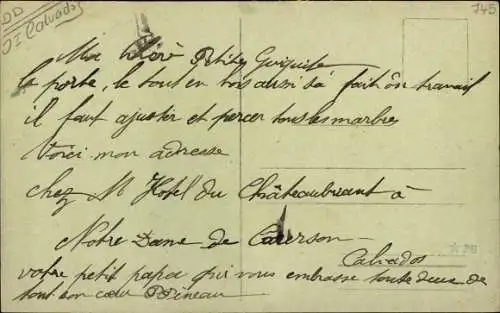 DD
OI Calvados
745
Petites
la porte, le tout en bois aussi sa fait ôn travail
il faut ajuster et percer tous les marbres
Voici mon adresse
chez M Hotel du Châteaubriant à
Notre Dame de
Calvados
votre petit papa qui vous embrasse toute deux de
tout son cœur